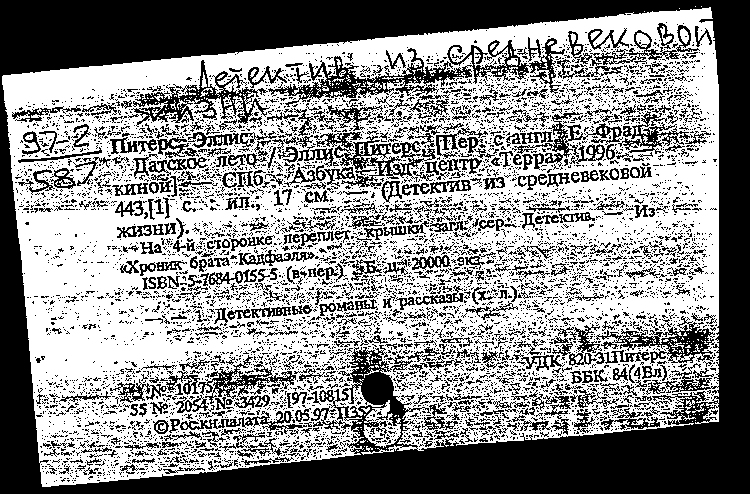 Детектив из средневековой
жизни
97-2
58.7
Питерс, Эллис.
Датское лето / Эллис Питерс; [Пер. с англ. Е. Фрад
киной]. — СПб.: Азбука: Изд. центр «Терра», 1996. —
443,[1] с. : ил., 17 см. — (Детектив из средневековой
жизни).
На 4-й сторонке переплет. крышки загл. сер.: Детектив. — Из
«Хроник брата Кадфаэля».
ISBN 5-7684-0155-5 (в пер.) : Б. ц., 20000 экз.
— — 1. Детективные романы и рассказы (х. л.).
УДК 820-31Питерс
ББК 84(4Вл)
№ 10175
55 № 2054 № 3429 [97-10815]
© Рос. кн. палата, 20.05.97 П35